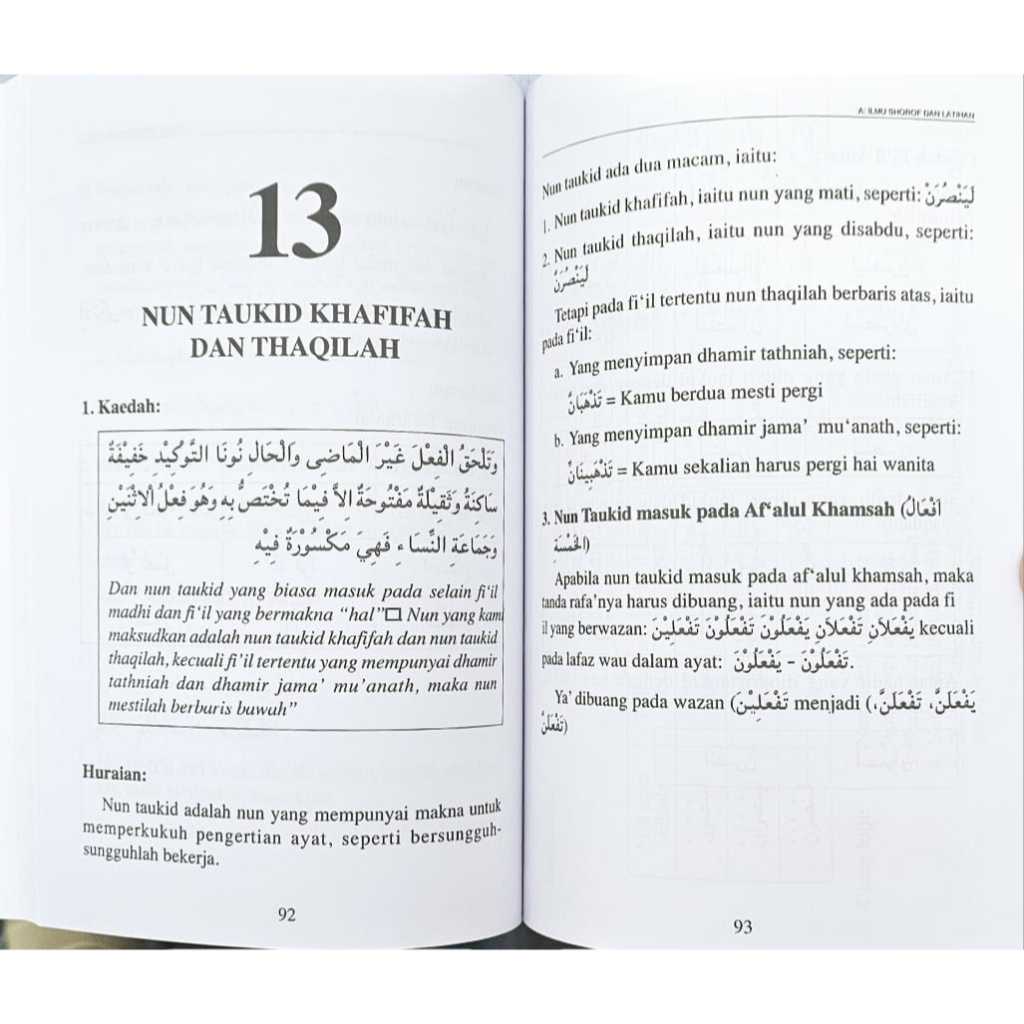 13
NUN TAUKID KHAFIFAH
DAN THAQILAH
1. Kaedah:
وَتَلْحَقُ الْفِعْلَ غَيْرَ الْمَاضِى وَالْحَالِ نُونَا التَّوْكِيْدِ خَفِيْفَةٌ
سَاكِنَةُ وَثَقِيْلَةٌ مَفْتُوحَةٌ اِلاَّ فِيْمَا تُخْتَصُّ بِهِ وَهُوَ فِعْلُ اْلاِثْنَيْنِ
وَجَمَاعَةِ النِّسَاءِ فَهِيَ مَكْسُوْرَةٌ فِيْهِ
Dan nun taukid yang biasa masuk pada selain fi‘il
madhi dan fi‘il yang bermakna “hal”□ Nun yang kami
maksudkan adalah nun taukid khafifah dan nun taukid
thaqilah, kecuali fi’il tertentu yang mempunyai dhamir
tathniah dan dhamir jama’ mu’anath, maka nun
mestilah berburis buwuh”
Huraian:
Nun taukid adalah nun yang mempunyai makna untuk
memperkukuh pengertian ayat, seperti bersungguh-
sungguhlah bekerja.
92
A: ILMU SHOROF DAN LATIHAN
Nun taukid ada dua macam, iaitu:
1. Nun taukid khafifah, iaitu nun yang mati, seperti: لَيَنْصُرَنْ
2. Nun taukid thaqilah, iaitu nun yang disabdu, seperti:
لَيَنْصُرَنَّ
Tetapi pada fi‘il tertentu nun thaqilah berbaris atas, iaitu
pada fi‘il:
a. Yang menyimpan dhamir tathniah, seperti:
تَذْهَبَانِّ = Kamu berdua mesti pergi
b. Yang menyimpan dhamir jama’ mu‘anath, seperti:
تَذْهَبِيْنَانِّ = Kamu sekalian harus pergi hai wanita
3. Nun Taukid masuk pada Af‘alul Khamsah (اَفْعَالُ
الْخَمْسَةِ)
Apabila nun taukid masuk pada af‘alul khamsah, maka
tanda rafa’nya harus dibuang, iaitu nun yang ada pada fi
il yang berwazan: يَفْعَلاَنِ تَفْعَلاَنِ يَفْعَلُوْنَ تَفْعَلُوْنَ تَفْعَلِيْنَ kecuali
pada lafaz wau dalam ayat: تَفْعَلُوْنَ - يَفْعَلُوْنَ.
Ya’ dibuang pada wazan (تَفْعَلِيْنَ menjadi (يَفْعَلَنَّ، تَفْعَلَنَّ،
تَفْعَلَنَّ)
93